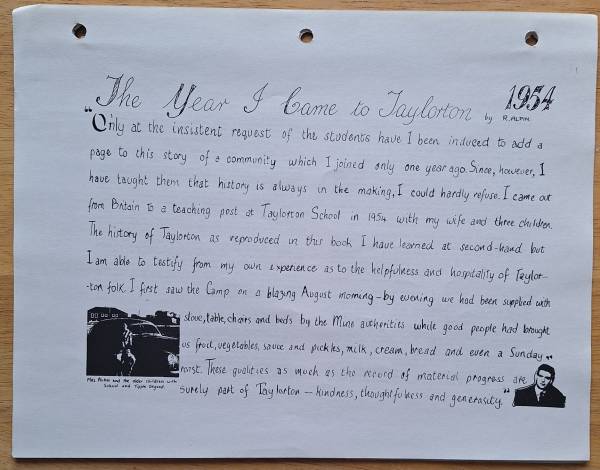 The Year I Came to Taylorton by R. ALPIN. 1954
"Only at the insistent request of the students have I been induced to add a
page to this story of a community which I joined only one year ago. Since, however, I
have taught them that history is always in the making, I could hardly refuse. I came out
from Britain to a teaching post at Taylorton School in 1954 with my wife and three children.
The history of Taylorton as reproduced in this book I have learned at second-hand but
I am able to testify from my own experience as to the helpfulness and hospitality of Taylor-
-ton folk. I first saw the Camp on a blazing August morning - by evening we had been supplied with
stove, table, chairs and beds by the Mine authorities while good people had brought
us fruit, vegetables, sauce and pickles, milk, cream, bread and even a Sunday
roast. These qualities as much as the record of material progress are
surely part of Taylorton - kindness, thoughtfulness and generosity."
Mrs. Alpin and the older children with
School and Tipple beyond.